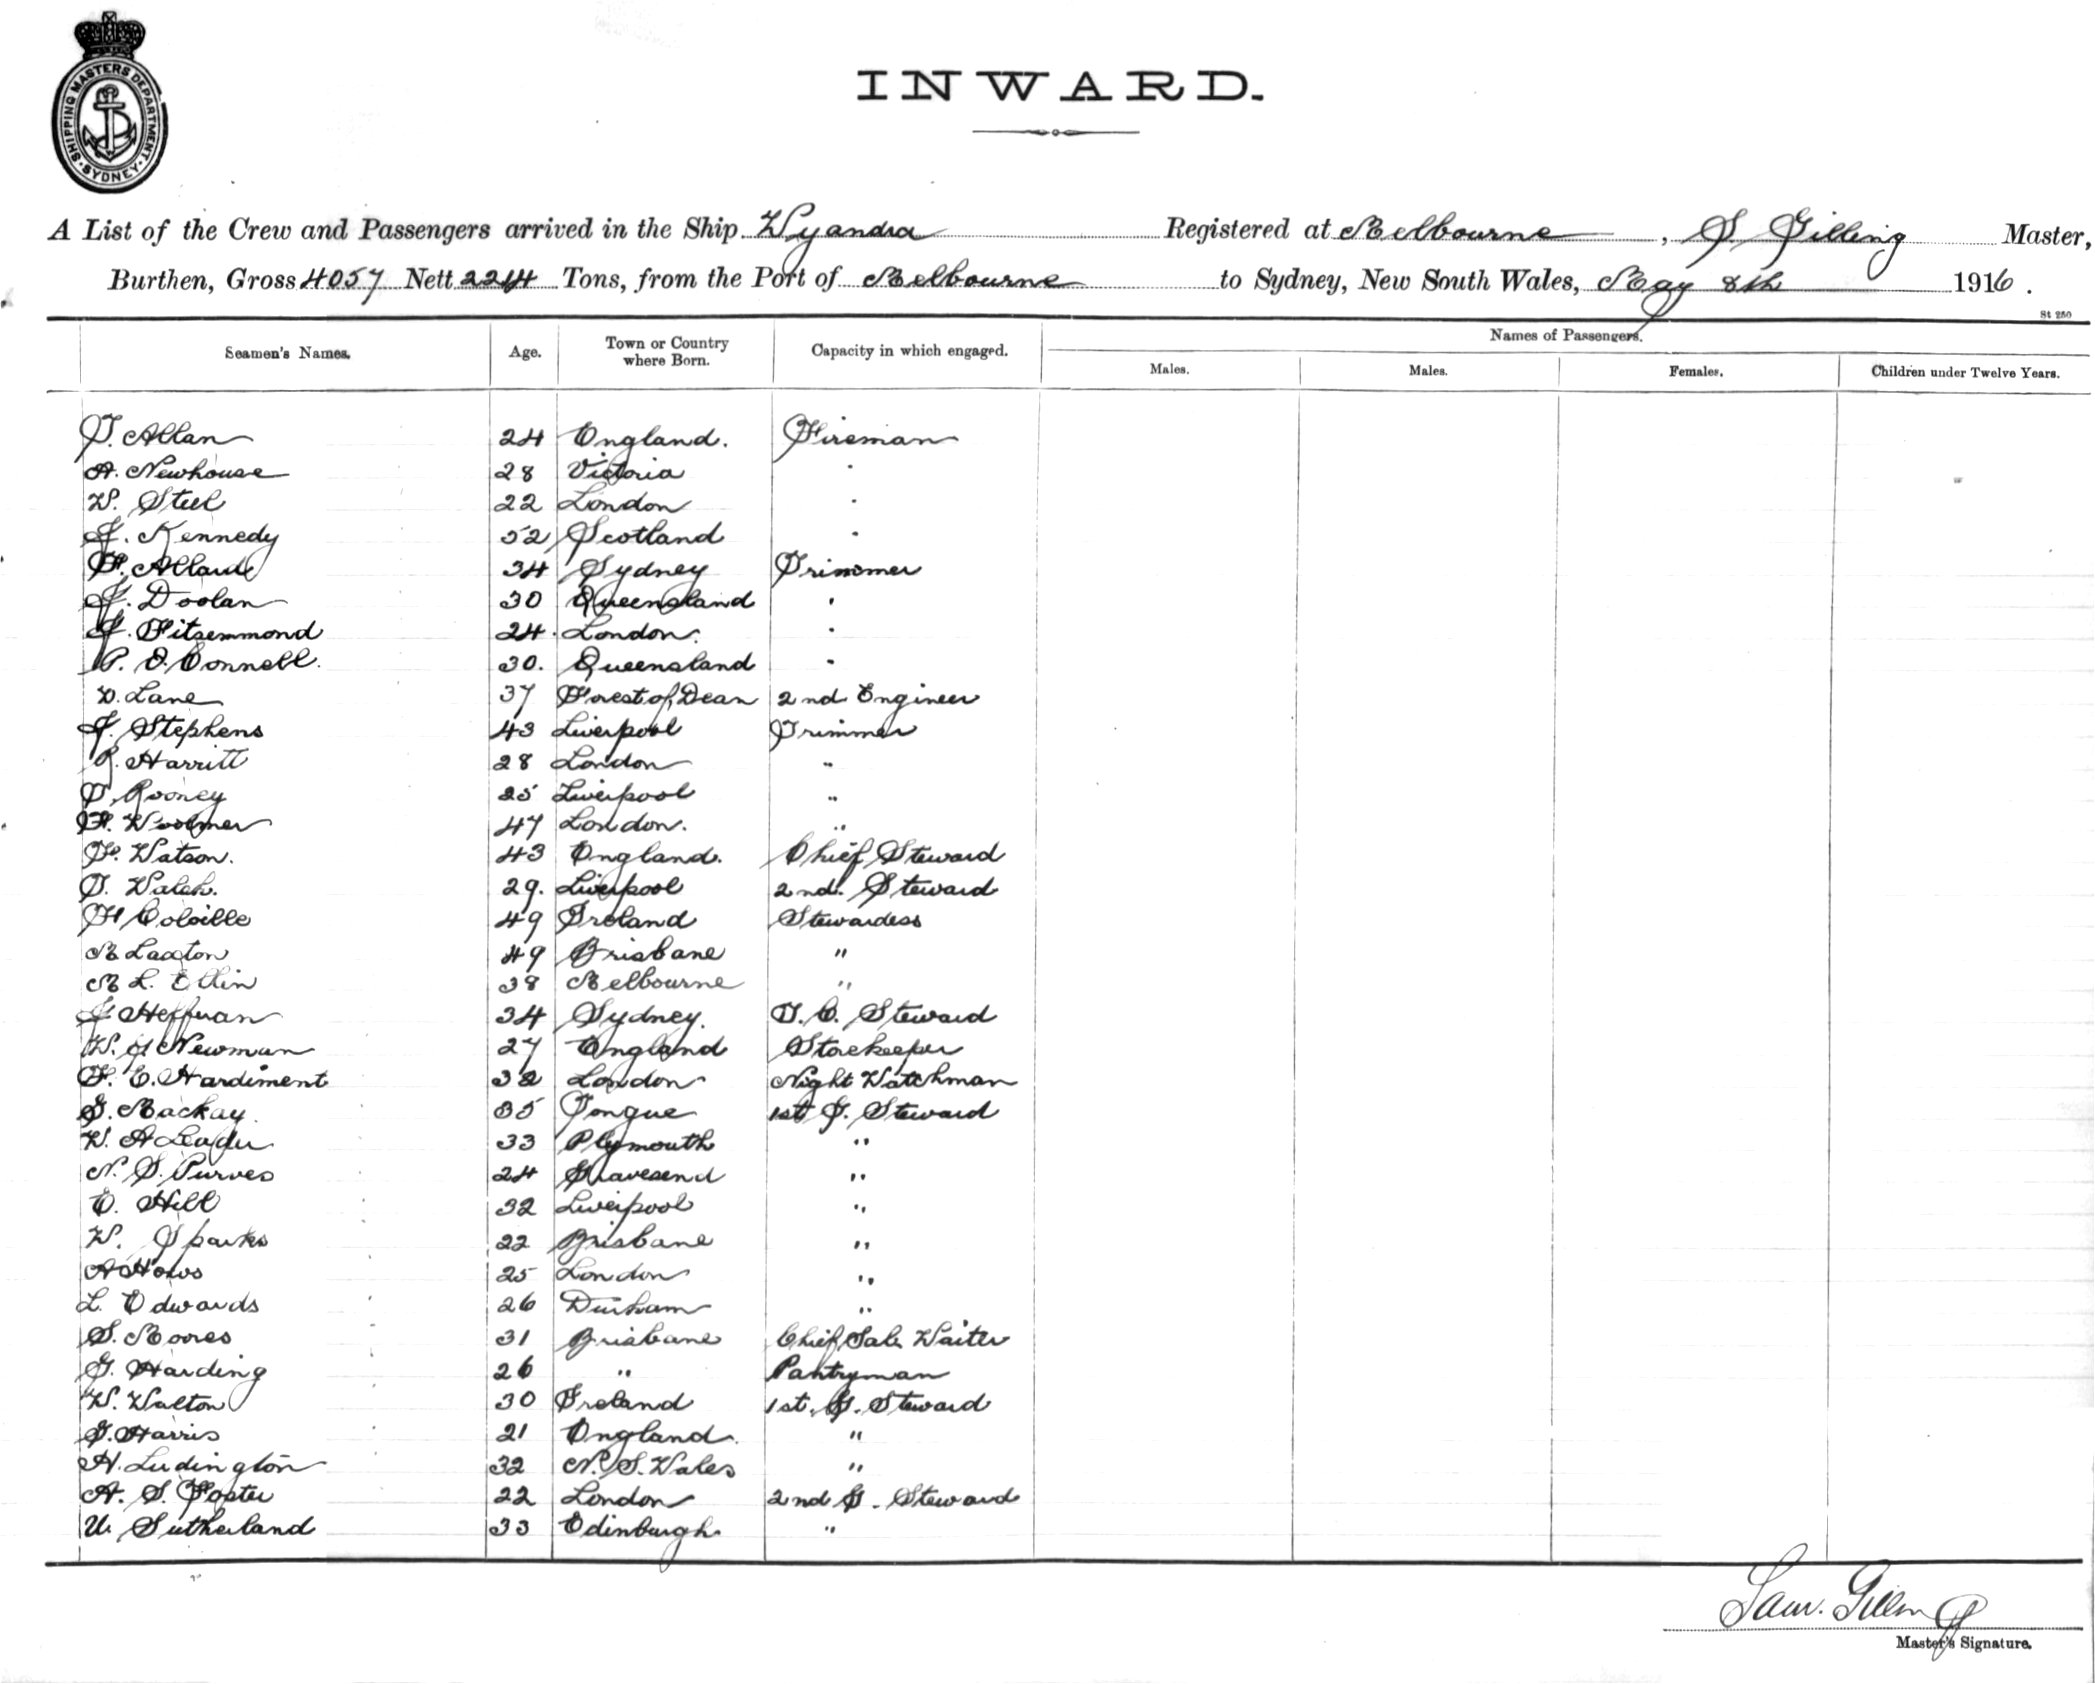 SHIPPING MASTERS DEPARTMENT. SYDNEY.
INWARD.
A List of the Crew and Passengers arrived in the Ship Wyandra Registered at Melbourne, S. Gilling Master,
Burthen, Gross 4057 Nett 2214 Tons, from the Port of Melbourne to Sydney, New South Wales, May 8th 1916.
St 250
Seamen's Names. Age. Town or Country where Born. Capacity in which engaged. Names of Passengers.
Males. Males. Females. Children under Twelve Years.
T. Allan 24 England. Fireman
A. Newhouse 28 Victoria "
W. Steel 22 London "
J. Kennedy 52 Scotland "
F. Allard 34 Sydney Trimmer
J. Doolan 30 Queensland "
J. Fitsemmond 24. London. "
P. O. Connell. 30. Queensland "
D. Lane 37 Forest of Dean 2nd Engineer
J. Stephens 43 Liverpool Trimmer
R. Harritt 28 London "
T. Rooney 25 Liverpool "
H. Woolmer 47 London. "
F. Watson. 43 England. Chief Steward
T. Walsh. 29. Liverpool 2nd. Steward
H Colville 49 Ireland Stewardess
M Laxton 49 Brisbane "
M L. Ellin 38 Melbourne "
J Heffernan 34 Sydney. T. C. Steward
W. J Newman 27 England Storekeeper
F. E. Hardiment 32 London Night Watchman
G. Mackay. 35 Tongue 1st G. Steward
W. A 33 Plymouth "
N. S. Purves 24 Gravesend "
E. Hill 32 Liverpool "
W. Sparks 22 Brisbane "
A Hows 25 London "
L. Edwards 26 Durham "
S. Moores 31 Brisbane Chief Sal. Waiter
G. Harding 26 " Pantryman
W. Walton 30 Ireland 1st. G. Steward
G. Harris 21 England. "
H. Ludington 32 N. S. Wales "
A. S. Foster 22 London 2nd G. Steward
W. Sutherland 33 Edinburgh. "
Saml. Gilling
Master's Signature.